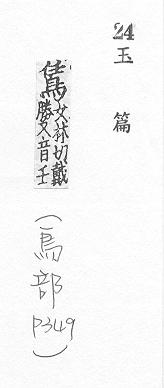 24
玉篇
女林切戴
勝又音壬
(鳥部P349)